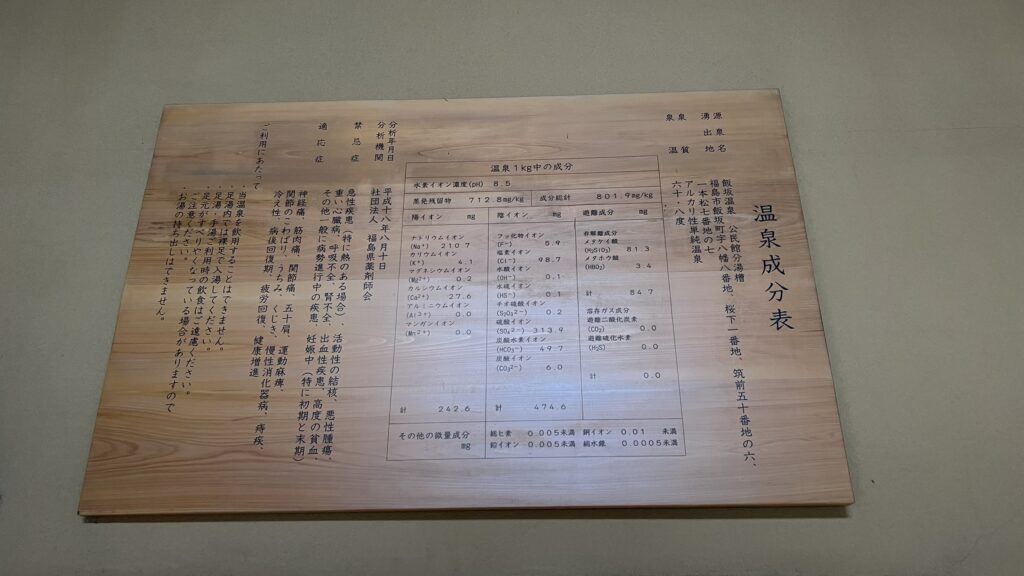 温泉成分表
源泉名 飯坂温泉 公民館分湯槽
湧出地 福島市飯坂町字八幡八番地、桜下一番地、筑前五十番地の六、
一本松七番地の七
泉質 アルカリ性単純温泉
泉温 六十・八度
温泉1kg中の成分
水素イオン濃度(pH) 8.5
蒸発残留物 712.8mg/kg 成分総計 801.9mg/kg
陽イオン mg
ナトリウムイオン
(Na⁺) 210.7
カリウムイオン
(K⁺) 4.1
マグネシウムイオン
(Mg²⁺) 0.2
カルシウムイオン
(Ca²⁺) 27.6
アルミニウムイオン
(Al³⁺) 0.0
マンガンイオン
(Mn²⁺) 0.0
計 242.6
陰イオン mg
フッ化物イオン
(F⁻) 5.9
塩素イオン
(Cl⁻) 98.7
水酸イオン
(OH⁻) 0.1
水硫イオン
(HS⁻) 0.1
チオ硫酸イオン
(S₂O₃²⁻) 0.2
硫酸イオン
(SO₄²⁻) 313.9
炭酸水素イオン
(HCO₃⁻) 49.7
炭酸イオン
(CO₃²⁻) 6.0
計 474.6
遊離成分 mg
非解離成分
メタケイ酸
(H₂SiO₃) 81.3
メタホウ酸
(HBO₂) 3.4
計 84.7
溶存ガス成分
遊離二酸化炭素
(CO₂) 0.0
遊離硫化水素
(H₂S) 0.0
計 0.0
その他の微量成分 mg
総ヒ素 0.005未満 銅イオン 0.01 未満
鉛イオン 0.005未満 総水銀 0.0005未満
分析年月日 平成十八年八月十日
分析機関 社団法人 福島県薬剤師会
禁忌症 急性疾患(特に熱のある場合)、活動性の結核、悪性腫瘍、
重い心臓病、呼吸不全、腎不全、出血性疾患、高度の貧血、
その他一般に病勢進行中の疾患、妊娠中(特に初期と末期)
適応症 神経痛、筋肉痛、関節痛、五十肩、運動麻痺、
関節のこわばり、うちみ、くじき、慢性消化器病、痔疾、
冷え性、病後回復期、疲労回復、健康増進
ご利用にあたって
・当温泉を飲用することはできません。
・足湯内では裸足で入湯してください。
・足湯・手湯ご利用時の飲食はご遠慮ください。
・足元がすべりやすくなっている場合がありますので
ご注意ください。
・お湯の持ち出しはできません。